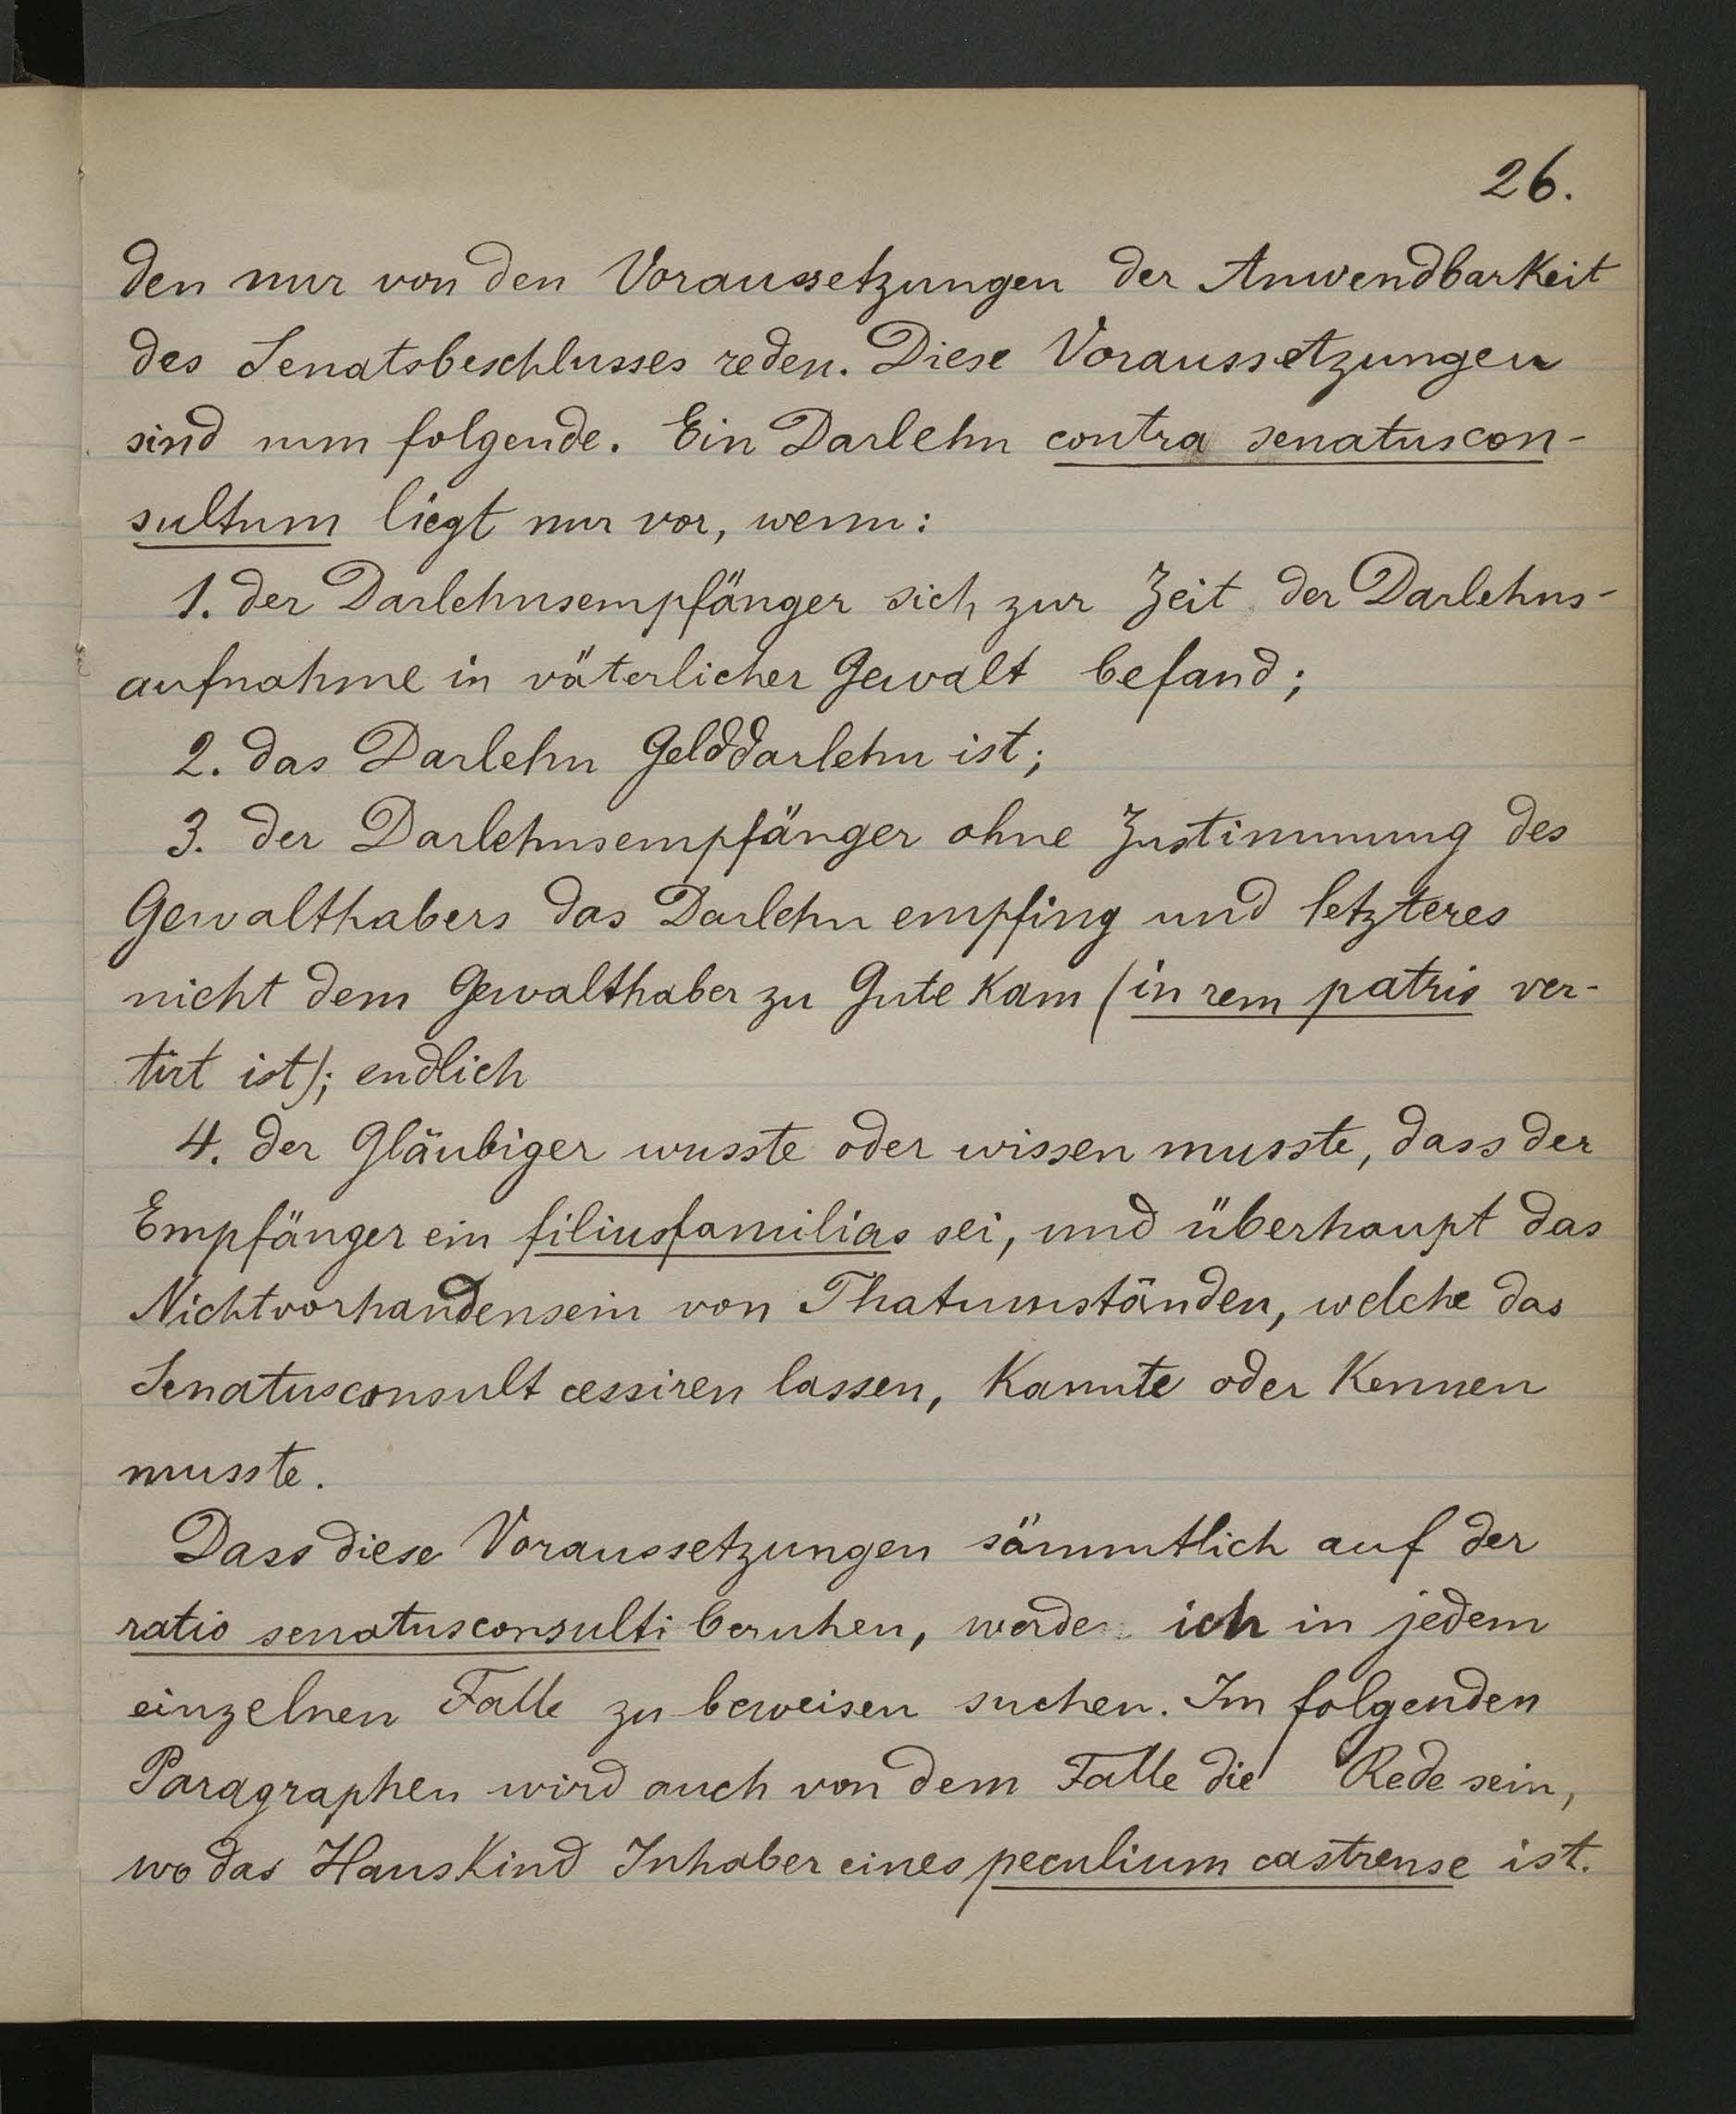 26.
den nur von den Voraussetzungen der Anwendbarkeit
des Senatsbeschlusses reden. Diese Voraussetzungen
sind nun folgende. Ein Darlehn contra senatuscon-
sultum liegt nur vor, wenn:
1. der Darlehnsempfänger sich zur Zeit der Darlehns-
aufnahme in väterlicher Gewalt befand;
2. das Darlehn Gelddarlehn ist;
3. der Darlehnsempfänger ohne Zustimmung des
Gewalthabers das Darlehn empfing und letzteres
nicht dem Gewalthaber zu Gute kam (in rem patris ver-
tirt ist); endlich
4. der Gläubiger wusste oder wissen musste, dass der
Empfänger ein filiusfamilias sei, und überhaupt das
Nichtvorhandensein von Thatumständen, welche das
Senatusconsult cessiren lassen, kannte oder kennen
musste.
Dass diese Voraussetzungen sämmtlich auf der
ratio senatusconsulti beruhen, werde ich in jedem
einzelnen Falle zu beweisen suchen. Im folgenden
Paragraphen wird auch von dem Falle die Rede sein,
wo das Hauskind Inhaber eines peculium castrense ist.